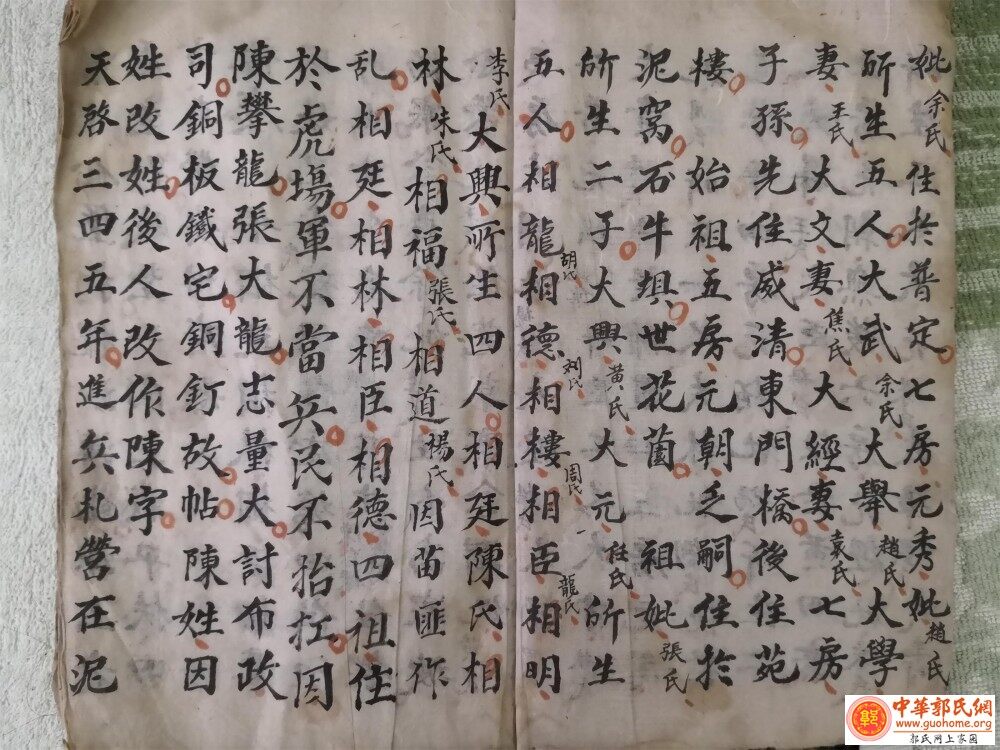 妣余氏住於普定七房元秀妣趙氏
所生五人大武余氏大舉趙氏大學
妻王氏大文妻焦氏大經妻袁氏七房
子孫先住威清東門橋後住苑
樓始祖五房元朝乏嗣住於
泥窩石牛垻世花箇祖妣張氏
所生二子大興黃氏大元杜氏所生
五人相龍胡氏相德刘氏相樓周氏相臣龍氏相明
李氏大興所生四人相廷陳氏相
林朱氏相福張氏相道楊氏因苗匪作
乱相廷相林相臣相德四祖住
於虎場軍不當兵民不抬扛因
陳攀龍張大龍志量大討布政
司銅板鐵宅銅釘故帖陳姓因
姓改姓後人改作陳字
天啓三四五年進兵札營在泥
中華郭氏網
www.guohome.org
郭氏网上家园